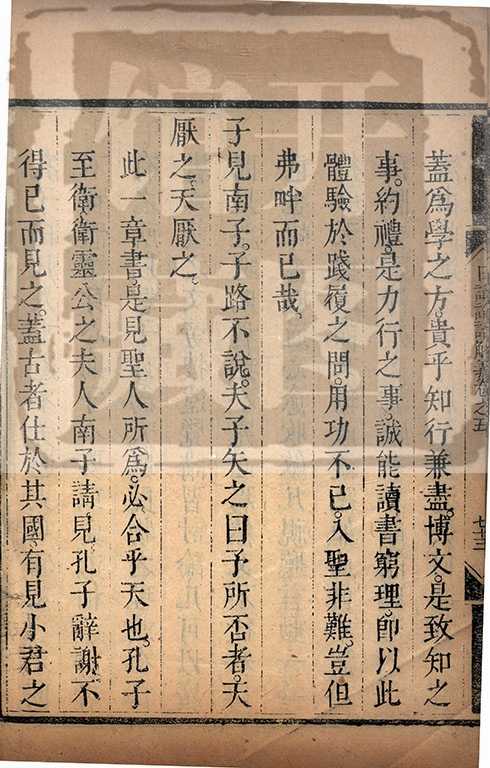 蓋爲學之方。貴乎知行兼盡。博文。是致知之
事。約禮。是力行之事。誠能讀書窮理。卽以此
體驗於踐履之間。用功不已。入聖非難。豈但
弗畔而已哉。
子見南子。子路不說。夫子矢之曰予所否者。天
厭之。天厭之。
此一章書。是見聖人所爲。必合乎天也。孔子
至衛。衛靈公之夫人南子請見。孔子辭謝。不
得已而見之。蓋古者仕於其國。有見小君之